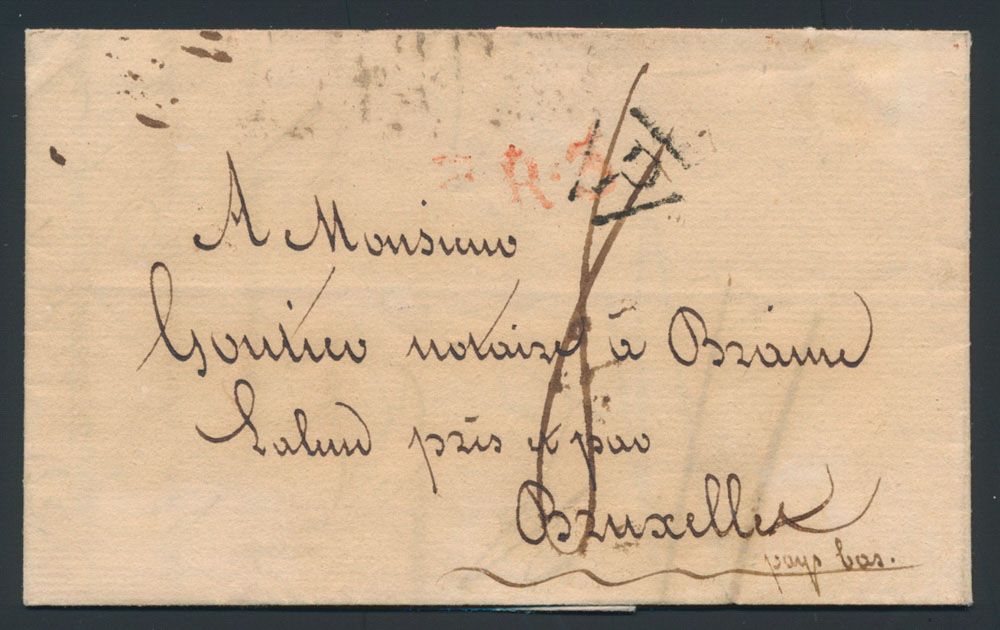 A Monsieur
Gontier notaire à Braine
Lalend près et par
Bruxelles
pays bas.